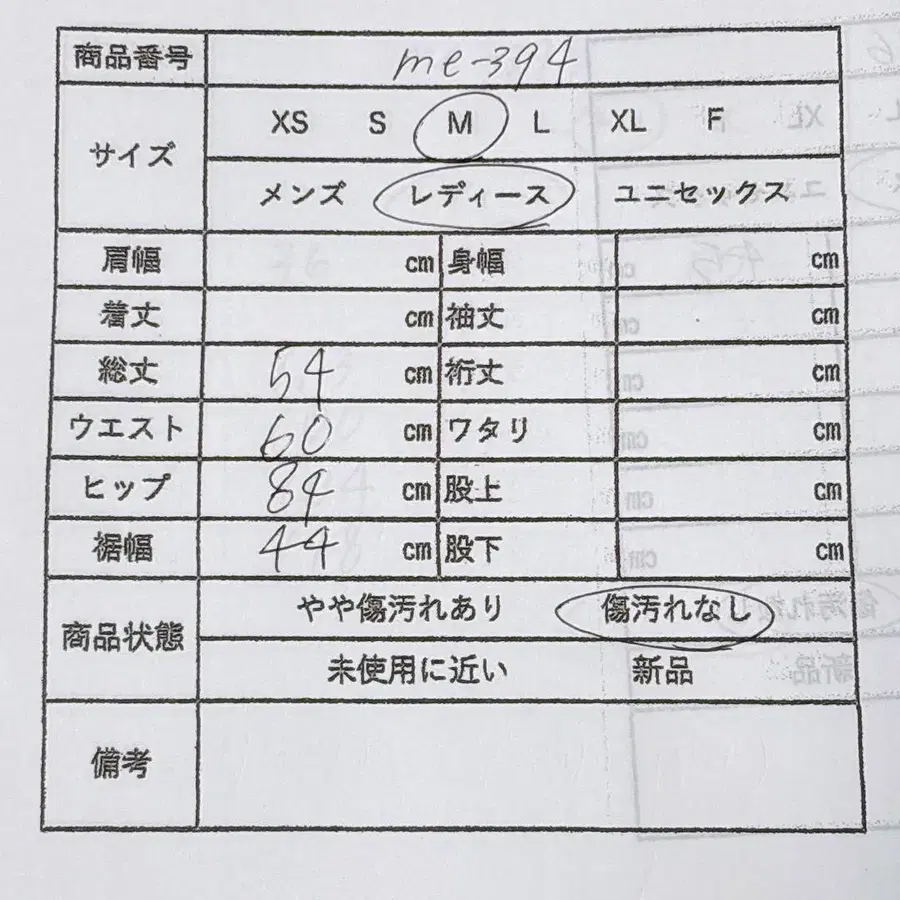 商品番号 me-394
サイズ XS S M L XL F
メンズ レディース ユニセックス
肩幅 cm 身幅 cm
着丈 cm 袖丈 cm
総丈 54 cm 裄丈 cm
ウエスト 60 cm ワタリ cm
ヒップ 84 cm 股上 cm
裾幅 44 cm 股下 cm
商品状態 やや傷汚れあり 傷汚れなし
未使用に近い 新品
備考